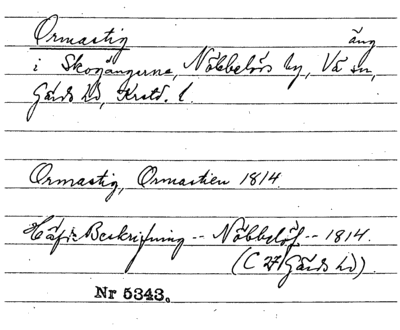 Ormastig äng
i Skogängarna, Nöbbelövs by, Vä sn,
Gärds hd, Krstd. l.
Ormastig, Ormastien 1814
Häfde Beskrifning -- Nöbbelöf -- 1814.
(C 27 Gärds hd)
Nr 5343.